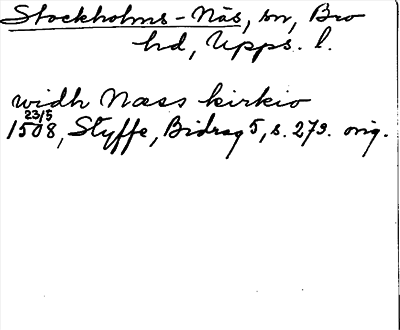 Stockholms-Näs, sn, Bro
hd, Upps. l.
widh Næss kirkio
23/5
1508, Styffe, Bidrag 5, s. 279. orig.